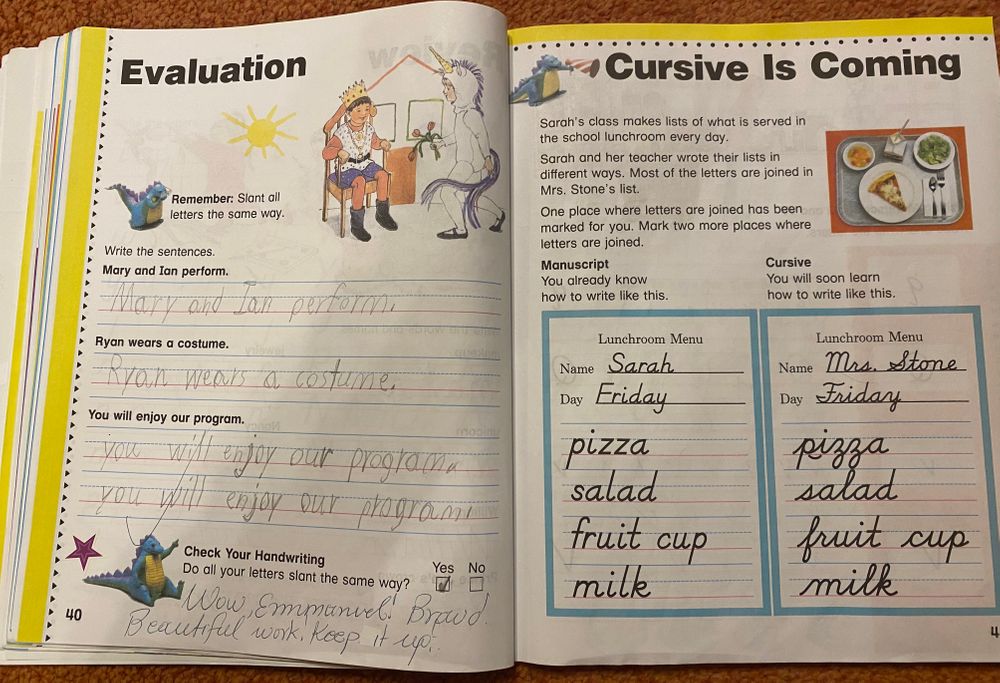 Evaluation
Remember: Slant all
letters the same way.
Write the sentences.
Mary and Ian perform.
Mary and Ian perform.
Ryan wears a costume.
Ryan wears a costume.
You will enjoy our program.
you will enjoy our program.
you will enjoy our program.
Check Your Handwriting
Do all your letters slant the same way?
Yes No
Wow, Emmanuel! Bravo!
Beautiful work. Keep it up!
40
Cursive Is Coming
Sarah's class makes lists of what is served in
the school lunchroom every day.
Sarah and her teacher wrote their lists in
different ways. Most of the letters are joined in
Mrs. Stone's list.
One place where letters are joined has been
marked for you. Mark two more places where
letters are joined.
Manuscript
You already know
how to write like this.
Lunchroom Menu
Name Sarah
Day Friday
pizza
salad
fruit cup
milk
Cursive
You will soon learn
how to write like this.
Lunchroom Menu
Name Mrs. Stone
Day Friday
pizza
salad
fruit cup
milk